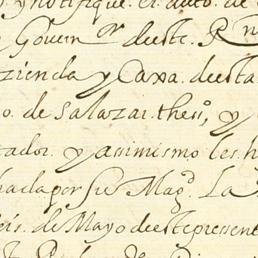 y notifique. el auto. de
Gouern.ʳ deeste. R.ⁿ
zienda y Caxa. deesta
o. de Salazar. theso., y
tador. y assimismo les. h
hada por su Mag.ᵈ La
eis. de Mayo deeste pressent